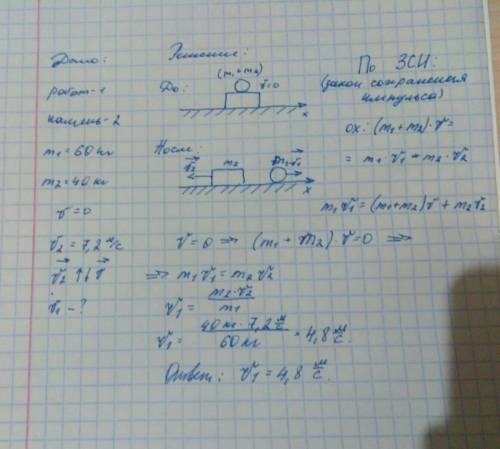 Дано:
робот-1
камень-2
m₁ = 60 кг
m₂ = 40 кг
v = 0
v₂ = 7,2 м/с
v₂ ↑↓ v
v₁ - ?
Решение:
(m₁+m₂)
До: v=0
x
После:
v₂ m₂ m₁ v₁
x
По ЗСИ:
(закон сохранения
импульса)
ox: (m₁+m₂)·v =
= m₁·v₁ - m₂·v₂
m₁v₁ = (m₁+m₂)v + m₂v₂
v = 0 => (m₁ + m₂)·v = 0 =>
=> m₁v₁ = m₂v₂
v₁ = m₂·v₂ / m₁
v₁ = 40 кг · 7,2 м/с / 60 кг = 4,8 м/с.
Ответ: v₁ = 4,8 м/с.